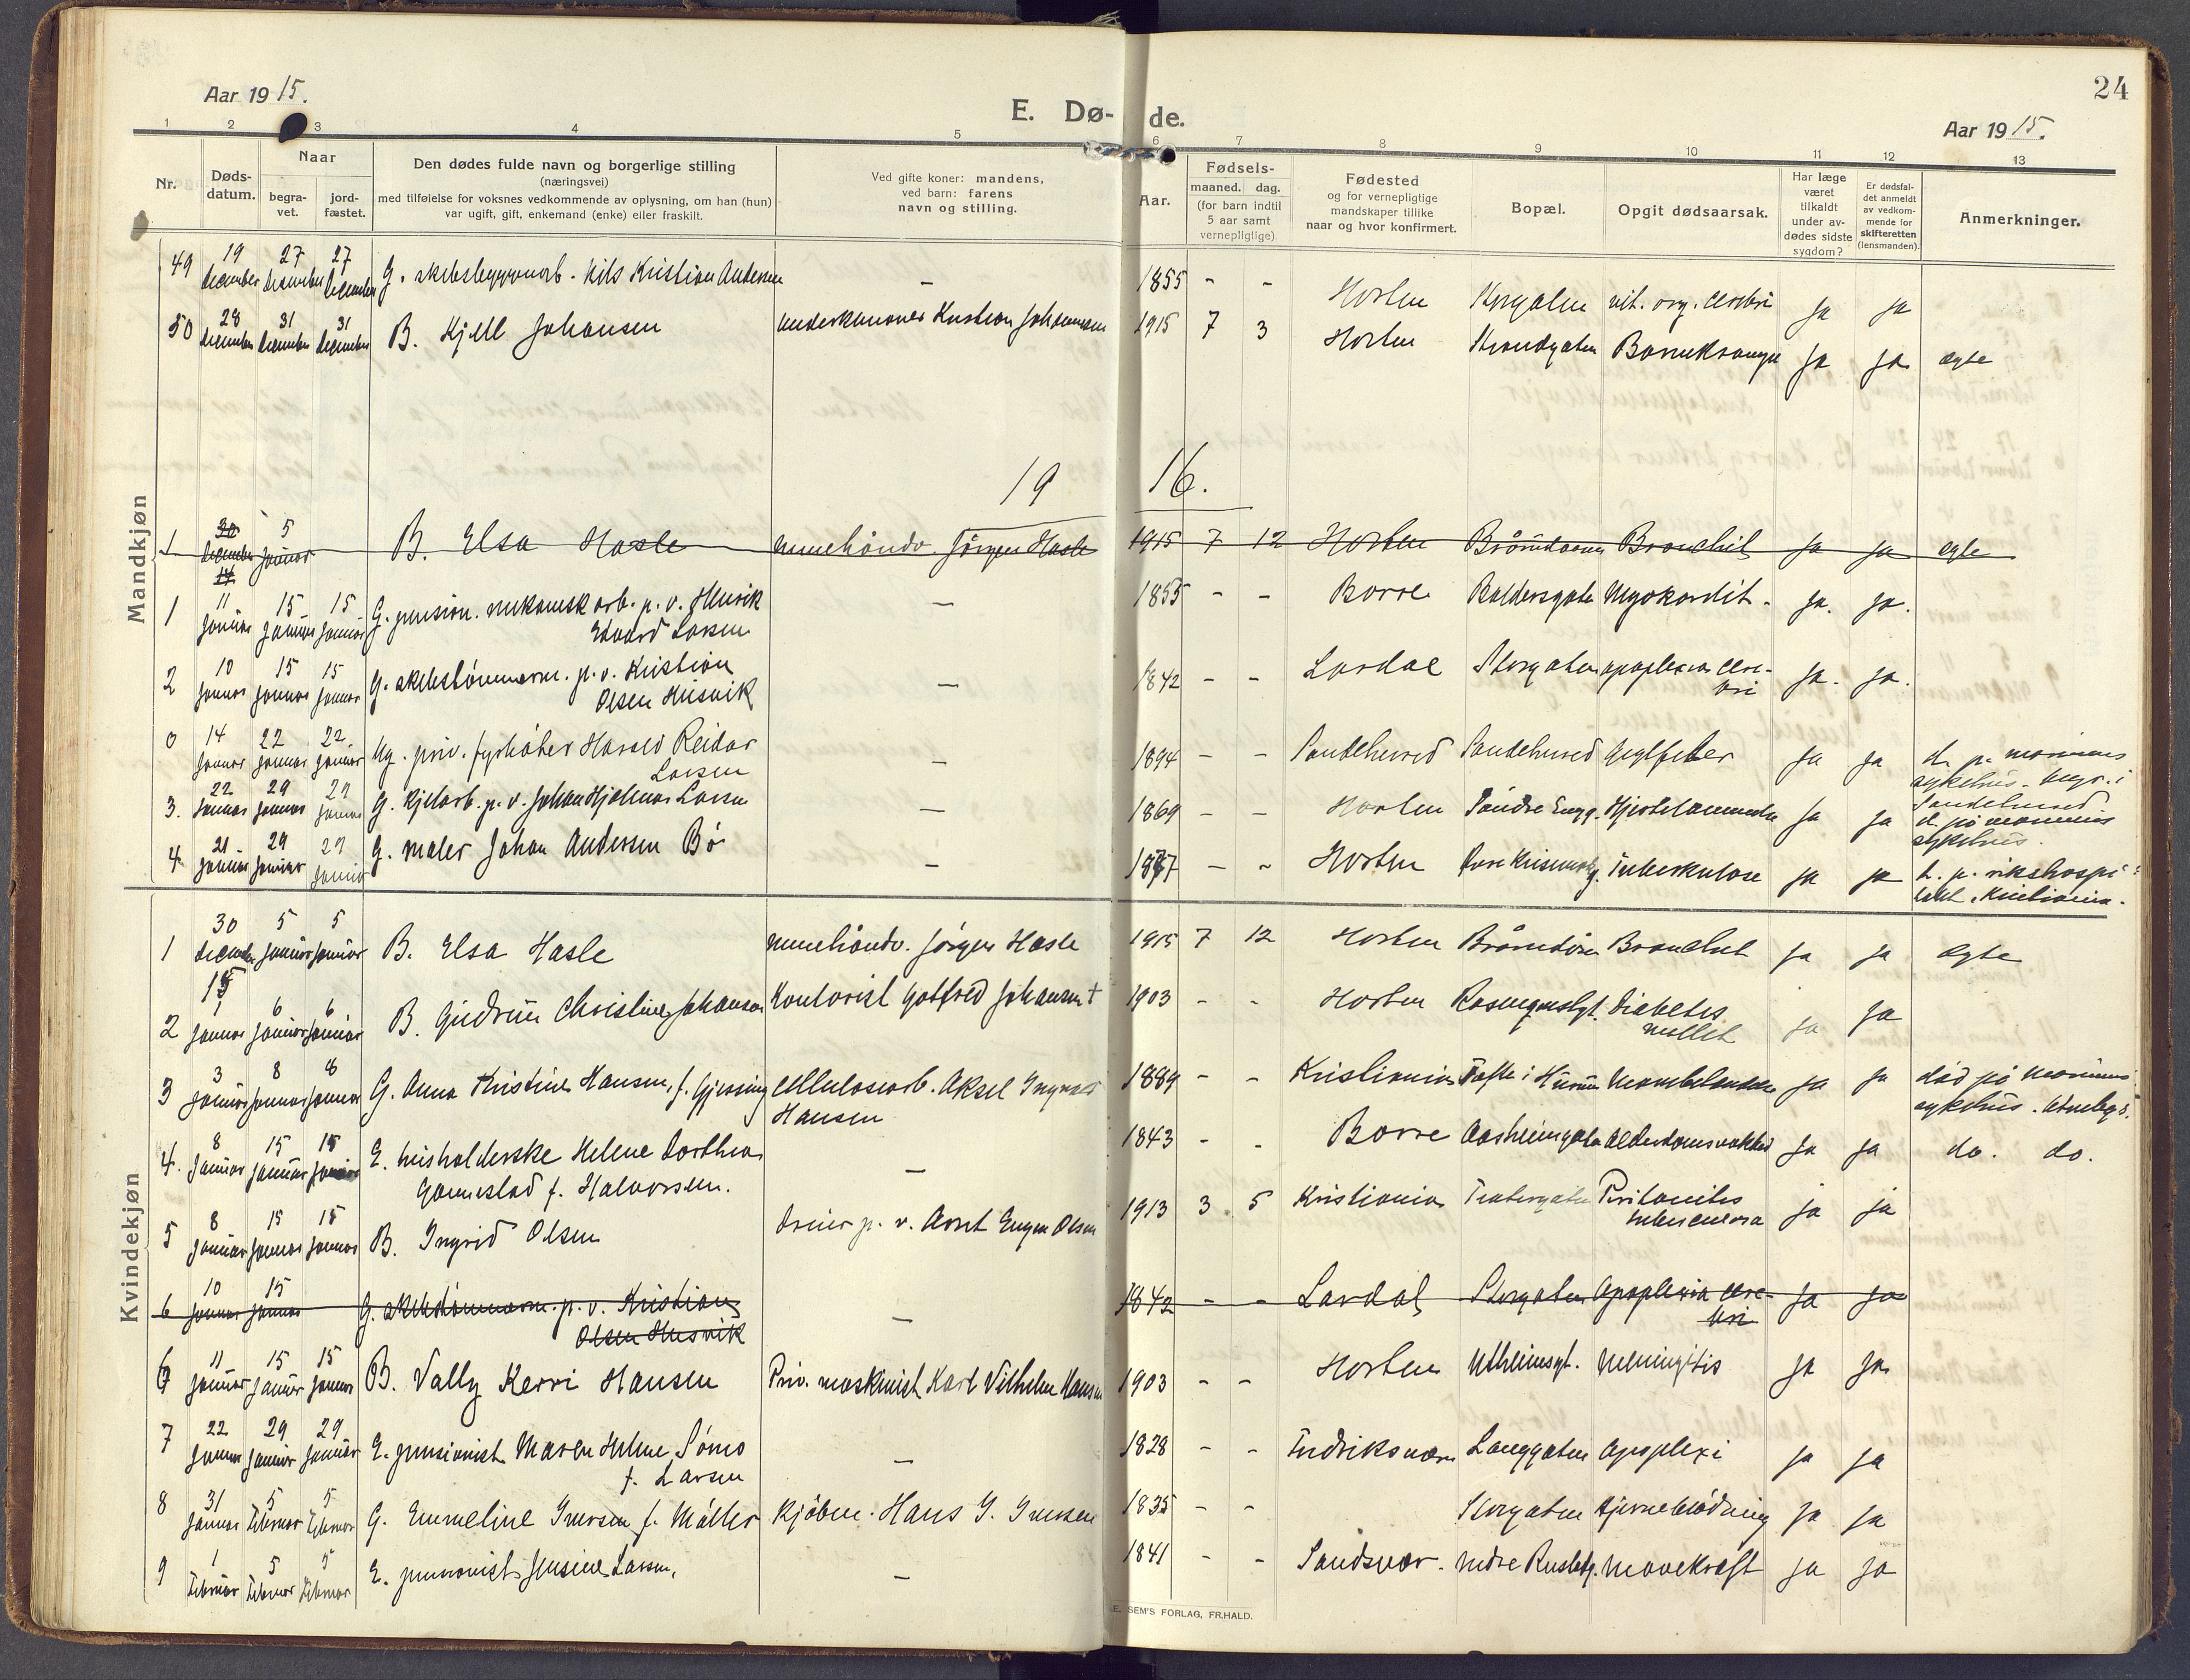 24
Aar 1915.
E. Dø-de.
Aar 1915.
1 2 3 4 5 6 7 8 9 10 11 12 13
Nr.
Døds-datum.
Naar
begra-vet.
jord-fæstet.
Den dødes fulde navn og borgerlige stilling
(næringsvei)
med tilføielse for voksnes vedkommende av oplysning, om han (hun)
var ugift, gift, enkemand (enke) eller fraskilt.
Ved gifte koner: mandens,
ved barn: farens
navn og stilling.
Aar.
Fødsels-
maaned. dag.
(for barn indtil
5 aar samt
vernepligtige)
Fødested
og for vernepligtige
mandskaper tillike
naar og hvor konfirmert.
Bopæl.
Opgit dødsaarsak.
Har læge
været
tilkaldt
under av-
dødes sidste
sygdom?
Er dødsfal-
det anmeldt
av vedkom-
mende for
skifteretten
(lensmanden).
Anmerkninger.
Mandkjøn
49 19 december 27 december 27 december G. skibsbyggerarb. Nils Kristian Andersen – 1855 - - Horten Storgaten vit. org. cerebri ja ja
50 28 december 31 december 31 december B. Kjell Johansen underkanoner Kristian Johannessen 1915 7 3 Horten Strandgaten ja ja egte
1916.
1 30 december 5 januar B. Elsa Hasle murerhåndv. Jörgen Hasle 1915 7 12 Horten Bronchit ja ja egte
14
1 11 januar 15 januar 15 januar G. pension. mekanisk arb. p. v. Henrik
Edvard Larsen – 1855 - - Borre Baldersgate Myokardit - ja. ja.
2 10 januar 15 januar 15 januar G. skibstømmerm. p. v. Kristian
Olsen Husvik – 1842 - - Lardal Storgaten apoplexia cere-
bri ja. ja.
0 14 januar 22 januar 22. januar Ug. priv. fyrbøter Harald Reidar
Larsen – 1894 - - Sandeherred Sandeherred ja ja d. p. marinens
sykehus. begr. i
Sandeherred
3. 22 januar 29 januar 29 januar G. kjelarb. p. v. Johan Hjalmar Larsen – 1869 - - Horten Søndre Engg. Hjertelammelse ja ja d. på marinens
sykehus.
4 21 januar 29 januar 29 januar G. maler Johan Andersen Bö – 1877 - - Horten Tuberkulose ja ja d. p. rikshospi-
talet, Kristiania.
Kvindekjøn
1 30 december 5 januar 5 januar B. Elsa Hasle murerhåndv. Jörgen Hasle 1915 7 12 Horten Bronchit ja ja egte
15
2 1 januar 6 januar 6 januar B. Gudrun Christine Johansen Kontorist Gotfred Johansen † 1903 - - Horten Rosenqvistgt. Diabetes
mellit ja ja
3 3 januar 8 januar 8 januar G. Anna Kristine Hansen, f. Gjessing Cellulosearb. Aksel Ingvald
Hansen 1889 - - Kristiania Tofte i Hurum ja ja død på marinens
sykehus.
4. 8 januar 15 januar 15 januar E. husholderske Helene Dorthea
Gannestad f. Halvorsen. – 1843 - - Borre Aasheimgata Alderdomssvakhed ja ja do. do.
5 8 januar 15 januar 15 januar B. Ingrid Olsen dreier p. v. Arnt Eugen Olsen 1913 3 5 Kristiania Teatergaten Peritonitis
tuberculosa ja ja
6 10 januar 15 januar G. skibstømmerm. p. v. Kristian
Olsen Husvik – 1842 - - Lardal Storgaten Apoplexia cere-
bri ja ja
6 11 januar 15 januar 15 januar B. Vally Kerri Hansen Priv. maskinist Karl Vilhelm Hansen 1903 - - Horten Utheimsgt. Meningitis ja ja
7 22 januar 29 januar 29 januar E. pensionist Maren Helene Sömo
f. Larsen – 1828 - - Fredriksværn Langgaten Apoplexi ja ja
8 31 januar 5 februar 5 februar G. Emmeline Iversen f. Möller Kjöbm. Hans J. Iversen 1835 - - Storgaten Hjerneblödning ja ja
9 1 februar 5 februar 5 februar E. pensionist Jensine Larsen, – 1841 - - Sandsvær. nedre Rustadg. Mavekræft ja ja
E. SEM'S FORLAG, FR.HALD.